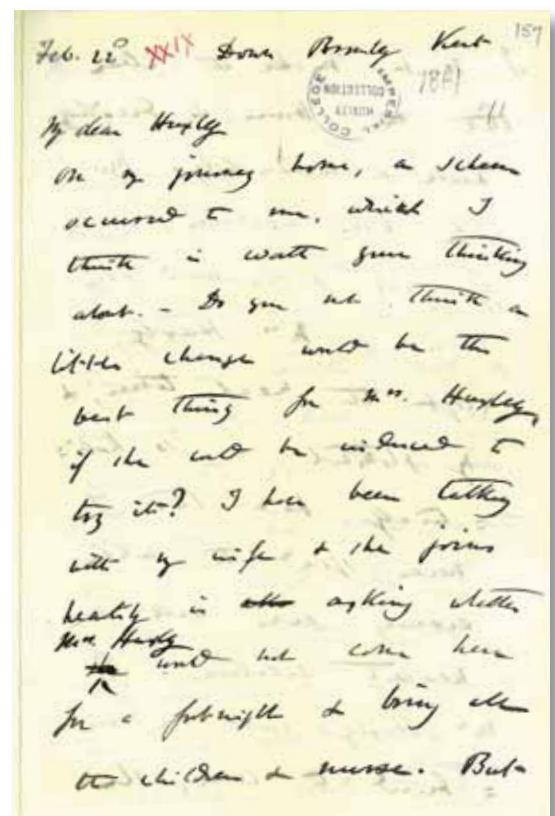 157
Feb. 22d XXIX Down Bromley Kent
IMPERIAL COLLEGE
HUXLEY
COLLECTION
1861
My dear Huxley
On my journey home, a scheme
occurred to me, which I
think is worth your thinking
about. — Do you not think a
little change would be the
best thing for Mrs. Huxley,
if she could be induced to
try it? I have been talking
with my wife & she joins
heartily in asking whether
Mrs Huxley would not come here
for a fortnight & bring all
the children & nurse. But